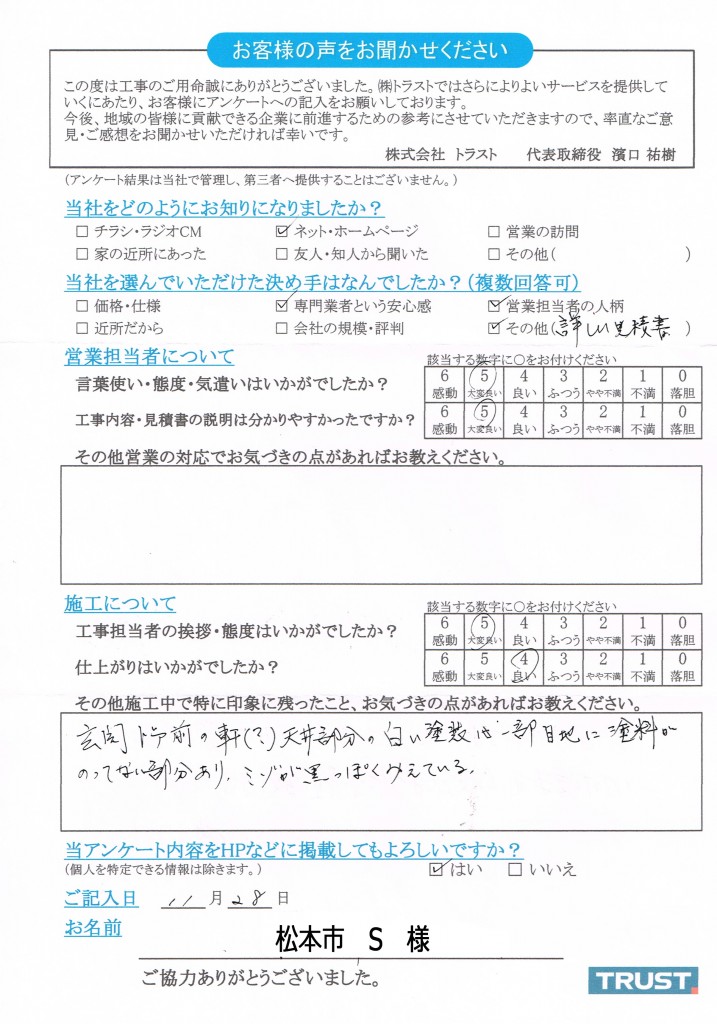 お客様の声をお聞かせください
この度は工事のご用命誠にありがとうございました。㈱トラストではさらによりよいサービスを提供して
いくにあたり、お客様にアンケートへの記入をお願いしております。
今後、地域の皆様に貢献できる企業に前進するための参考にさせていただきますので、率直なご意
見・ご感想をお聞かせいただければ幸いです。
株式会社 トラスト 代表取締役 濱口 祐樹
(アンケート結果は当社で管理し、第三者へ提供することはございません。)
当社をどのようにお知りになりましたか？
□ チラシ・ラジオCM ☑ ネット・ホームページ □ 営業の訪問
□ 家の近所にあった □ 友人・知人から聞いた □ その他( )
当社を選んでいただけた決め手はなんでしたか？(複数回答可)
□ 価格・仕様 ☑ 専門業者という安心感 ☑ 営業担当者の人柄
□ 近所だから □ 会社の規模・評判 ☑ その他(詳しい見積書 )
営業担当者について 該当する数字に○をお付けください
言葉使い・態度・気遣いはいかがでしたか？ 6 5 4 3 2 1 0
感動 大変良い 良い ふつう やや不満 不満 落胆
工事内容・見積書の説明は分かりやすかったですか？ 6 5 4 3 2 1 0
感動 大変良い 良い ふつう やや不満 不満 落胆
その他営業の対応でお気づきの点があればお教えください。
施工について 該当する数字に○をお付けください
工事担当者の挨拶・態度はいかがでしたか？ 6 5 4 3 2 1 0
感動 大変良い 良い ふつう やや不満 不満 落胆
仕上がりはいかがでしたか？ 6 5 4 3 2 1 0
感動 大変良い 良い ふつう やや不満 不満 落胆
その他施工中で特に印象に残ったこと、お気づきの点があればお教えください。
玄関ドア前の軒(?)天井部分の白い塗装が一部目地に塗料が
のってない部分あり、ミゾが黒っぽくみえている。
当アンケート内容をHPなどに掲載してもよろしいですか？
(個人を特定できる情報は除きます。) ☑ はい □ いいえ
ご記入日 11 月 28 日
お名前 松本市 S 様
ご協力ありがとうございました。
TRUST.